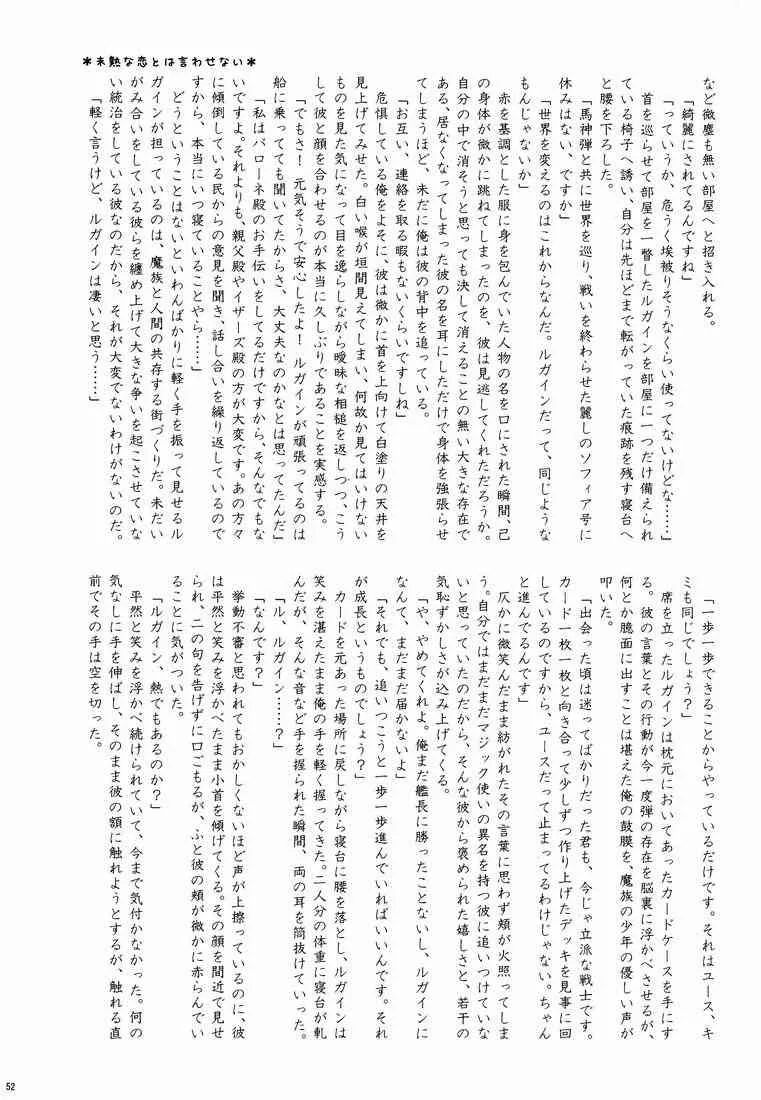 ＊未熟な恋とは言わせない＊
など微塵も無い部屋へと招き入れる。
「綺麗にされてるんですね」
「っていうか、危うく埃被りそうなくらい使ってないけどな……」
首を巡らせて部屋を一瞥したルガインを部屋に一つだけ備えられ
ている椅子へ誘い、自分は先ほどまで転がっていた痕跡を残す寝台へ
と腰を下ろした。
「馬神弾と共に世界を巡り、戦いを終わらせた麗しのソフィア号に
休みはない、ですか」
「世界を変えるのはこれからなんだ。ルガインだって、同じような
もんじゃないか」
赤を基調とした服に身を包んでいた人物の名を口にされた瞬間、己
の身体が微かに跳ねてしまったのを、彼は見逃してくれただろうか。
自分の中で消そうと思っても決して消えることの無い大きな存在で
ある、居なくなってしまった彼の名を耳にしただけで身体を強張らせ
てしまうほど、未だに俺は彼の背中を追っている。
「お互い、連絡を取る暇もないくらいですしね」
危惧している俺をよそに、彼は微かに首を上向けて白塗りの天井を
見上げてみせた。白い喉が垣間見えてしまい、何故か見てはいけない
ものを見た気になって目を逸らしながら曖昧な相槌を返しつつ、こう
して彼と顔を合わせるのが本当に久しぶりであることを実感する。
「でもさ！元気そうで安心したよ！ルガインが頑張ってるのは
船に乗ってても聞いてたからさ、大丈夫なのかなとは思ってたんだ」
「私はバローネ殿のお手伝いをしてるだけですから、そんなでもな
いですよ。それよりも、親父殿やイザーズ殿の方が大変です。あの方々
に傾倒している民からの意見を聞き、話し合いを繰り返しているので
すから、本当にいつ寝ていることやら……」
どうということはないといわんばかりに軽く手を振って見せるル
ガインが担っているのは、魔族と人間の共存する街づくりだ。未だい
がみ合いをしている彼らを纏め上げて大きな争いを起こさせていな
い統治をしている彼なのだから、それが大変でないわけがないのだ。
「軽く言うけど、ルガインは凄いと思う……」
「一歩一歩できることからやっているだけです。それはユース、キ
ミも同じでしょう？」
席を立ったルガインは枕元においてあったカードケースを手にす
る。彼の言葉とその行動が今一度弾の存在を脳裏に浮かべさせるが、
何とか臆面に出すことは堪えた俺の鼓膜を、魔族の少年の優しい声が
叩いた。
「出会った頃は迷ってばかりだった君も、今じゃ立派な戦士です。
カード一枚一枚と向き合って少しずつ作り上げたデッキを見事に回
しているのですから、ユースだって止まってるわけじゃない。ちゃん
と進んでるんです」
仄かに微笑んだまま紡がれたその言葉に思わず頬が火照ってしま
う。自分ではまだまだマジック使いの異名を持つ彼に追いつけていな
いと思っていたのだから、そんな彼から褒められた嬉しさと、若干の
気恥ずかしさが込み上げてくる。
「や、やめてくれよ。俺まだ艦長に勝ったことないし、ルガインに
なんて、まだまだ届かないよ」
「それでも、追いつこうと一歩一歩進んでいればいいんです。それ
が成長というものでしょう？」
カードを元あった場所に戻しながら寝台に腰を落とし、ルガインは
笑みを湛えたまま俺の手を軽く握ってきた。二人分の体重に寝台が軋
んだが、そんな音など手を握られた瞬間、両の耳を筒抜けていった。
「ル、ルガイン……？」
「なんです？」
挙動不審と思われてもおかしくないほど声が上擦っているのに、彼
は平然と笑みを浮かべたまま小首を傾げてくる。その顔を間近で見せ
られ、二の句を告げずに口ごもるが、ふと彼の頬が微かに赤らんでい
ることに気がついた。
「ルガイン、熱でもあるのか？」
平然と笑みを浮かべ続けられていて、今まで気付かなかった。何の
気なしに手を伸ばし、そのまま彼の額に触れようとするが、触れる直
前でその手は空を切った。
52